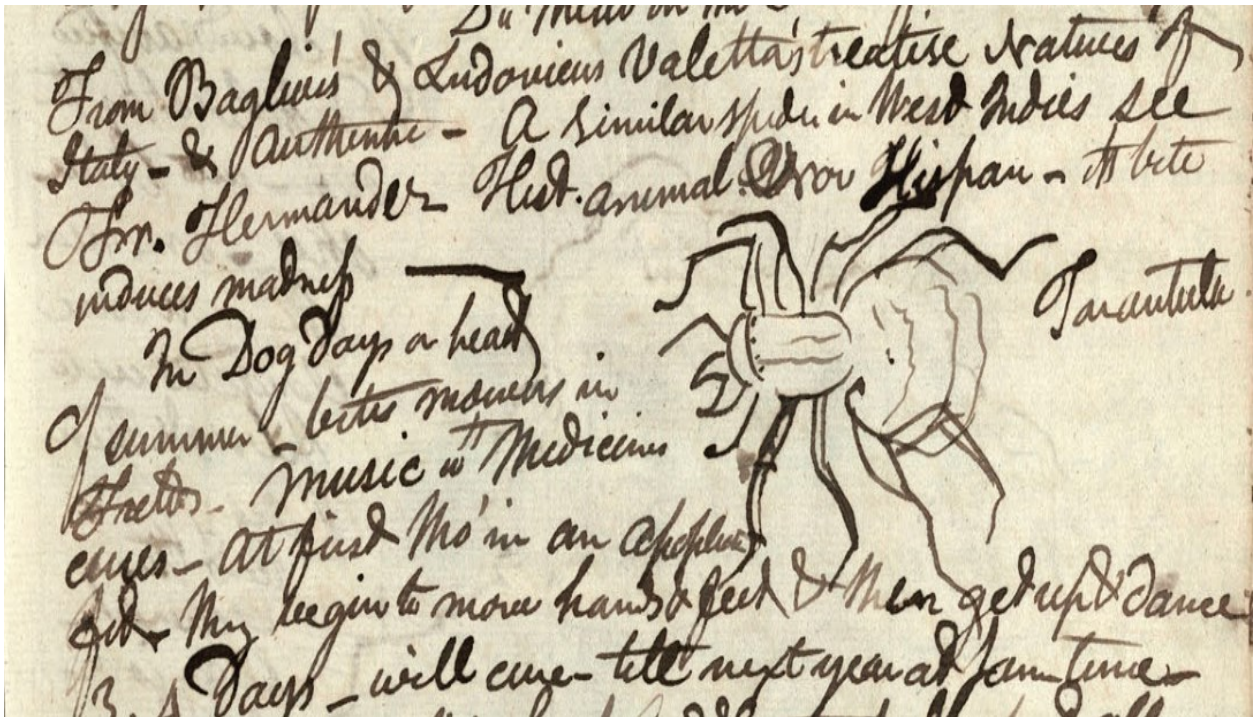 From Baglivis & Ludovicus Valetta's treatise Natives of
Italy - & Authentic - A similar spider in West Indies see
Hernandez Hist. animal. Nov Hispan - its bite
induces madness
Tarantula
In Dog days or heat
of summer - bites mowers in
music is Medicine
cures - At first tho' in an apoplec
fit - they begin to move hands & feet & then get up & dance
3. 4 Days - will cure - till next year at same time -